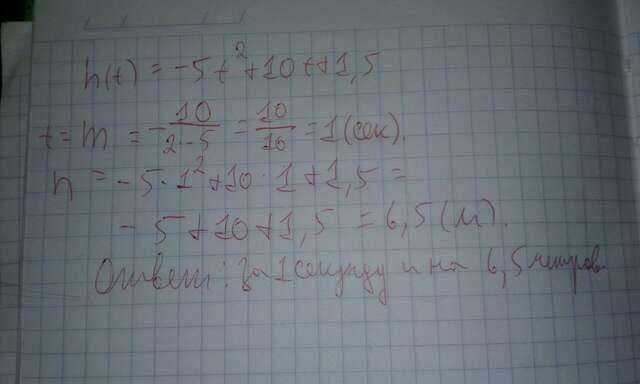 h(t) = -5t² + 10t + 1,5
t = m = -10/2·-5 = 10/10 = 1 (сек).
h = -5·1² + 10·1 + 1,5 =
-5 + 10 + 1,5 = 6,5 (м).
Ответ: за 1 секунду и на 6,5 метров